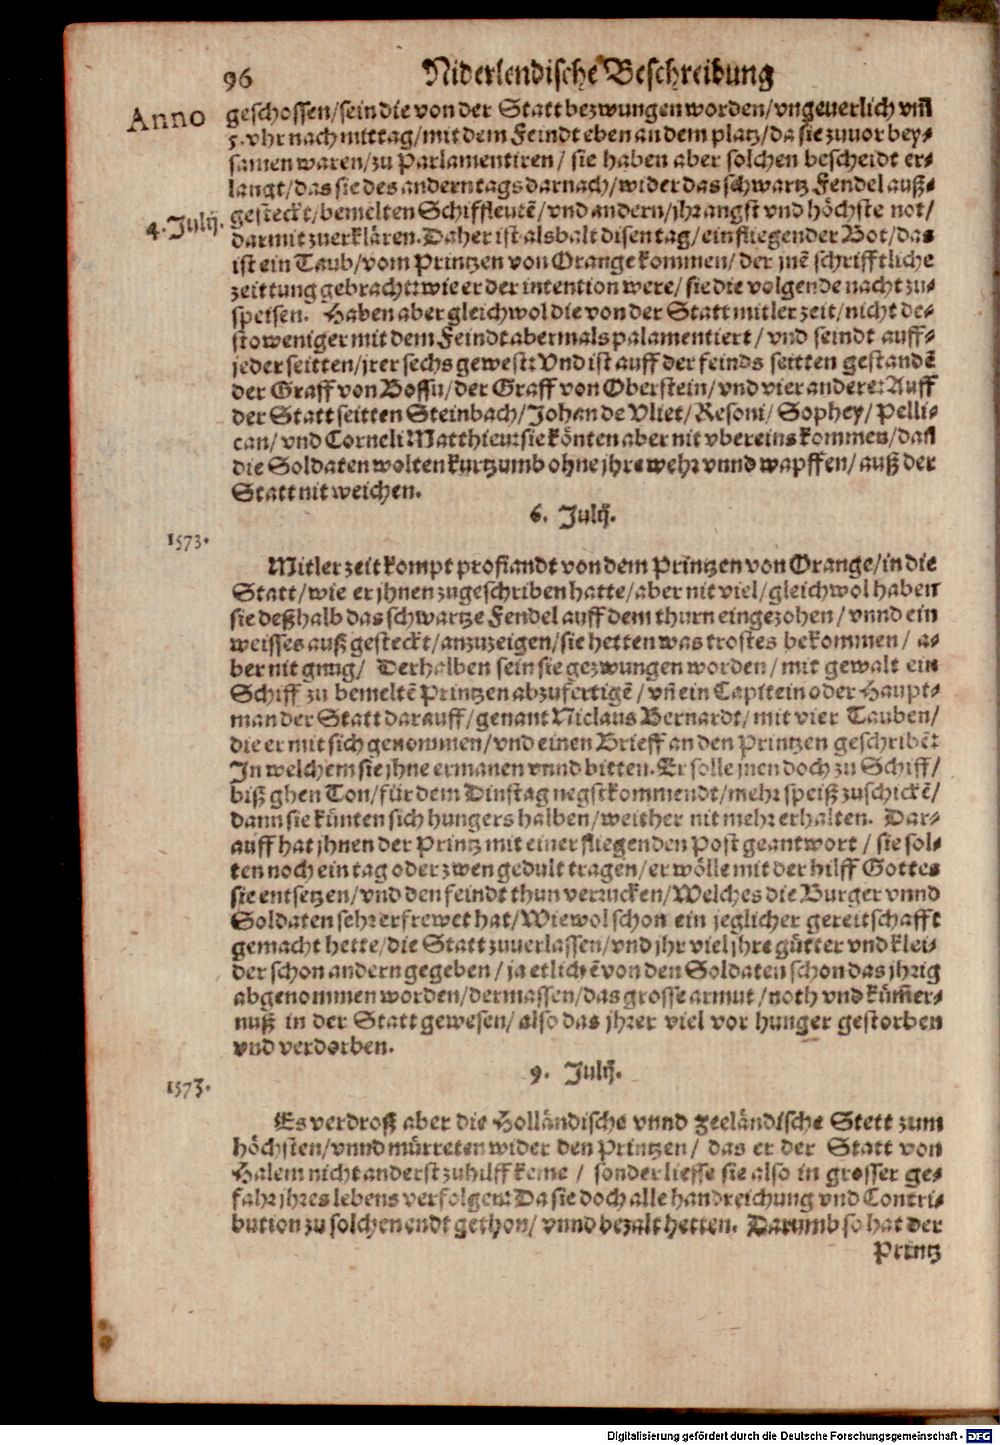 96 Niderlendische Beschreibung
Anno
geschossen/sein die von der Statt bezwungen worden/vngeuerlich vm̃
5. vhr nach mittag/mit dem Feindt eben an dem platz/da sie zuuor bey⸗
samen waren/zu Parlamentiren/ sie haben aber solchen bescheidt er⸗
langt/das sie des andern tags darnach/wider das schwartz Fendel auß⸗
4. Julij.
gesteckt/bemelten Schiffleutẽ/vnd andern/jhr angst vnd höchste not/
darmit zuerklären. Daher ist alsbalt disen tag/ein fliegender Bot/das
ist ein Taub/vom Printzen von Orange kommen/der jnẽ schrifftliche
zeittung gebracht: wie er der intention were/sie die volgende nacht zu⸗
speisen. Haben aber gleichwol die von der Statt mitler zeit/nicht de⸗
stoweniger mit dem Feindt abermals palamentiert/ vnd seindt auff⸗
jeder seitten/jrer sechs gewest: Vnd ist auff der feinds seitten gestandẽ
der Graff von Bossu/der Graff von Oberstein/vnd vier andere: Auff
der Statt seitten Steinbach/Johan de Vliet/Resoni/Sophey/Pelli⸗
can/vnd Corneli Matthieu: sie könten aber nit vbereins kommen/dañ
die Soldaten wolten kurtzumb ohne jhre wehr vnnd wapffen/auß der
Statt nit weichen.
6. Julij.
1573.
Mitler zeit kompt profiandt von dem Printzen von Orange/in die
Statt/wie er jhnen zugeschriben hatte/aber nit viel/gleichwol haben
sie deßhalb das schwartze Fendel auff dem thurn eingezohen/vnnd ein
weisses auß gesteckt/anzuzeigen/sie hetten was trostes bekommen/ a⸗
ber nit gnug/ Derhalben sein sie gezwungen worden/mit gewalt ein
Schiff zu bemeltẽ Printzen abzufertigẽ/vñ ein Capitein oder Haupt⸗
man der Statt darauff/genant Niclaus Bernardt/mit vier Tauben/
die er mit sich genommen/vnd einen Brieff an den Printzen geschribẽ:
In welchem sie jhne ermanen vnnd bitten. Er solle jnen doch zu Schiff/
biß ghen Ton/für dem Dinstag negstkommendt/mehr speiß zuschickẽ/
dann sie künten sich hungers halben/weither nit mehr erhalten. Dar⸗
auff hat jhnen der Printz mit einer fliegenden Post geantwort/ sie sol⸗
ten noch ein tag oder zwen gedult tragen/er wölle mit der hilff Gottes
sie entsetzen/vnd den feindt thun verrucken/Welches die Burger vnnd
Soldaten sehr erfrewet hat/Wiewol schon ein jeglicher gereitschafft
gemacht hette/die Statt zuuerlassen/vnd jhr viel jhre gütter vnd klei⸗
der schon andern gegeben/ja etlichẽ von den Soldaten schon das jhrig
abgenommen worden/dermassen/das grosse armut/noth vnd küm̃er⸗
nuß in der Statt gewesen/also das jhrer viel vor hunger gestorben
vnd verdorben.
9. Julij.
1573.
Es verdroß aber die Holländische vnnd Zeeländische Stett zum
höchsten/vnnd mürreten wider den Printzen/ das er der Statt von
Halem nicht anderst zu hilff keme/ sonder liesse sie also in grosser ge⸗
fahr jhres lebens verfolgen: Da sie doch alle handreichung vnd Contri⸗
bution zu solchen endt gethon/vnnd bezalt hetten. Darumb so hat der
Printz
Digitalisierung gefördert durch die Deutsche Forschungsgemeinschaft - DFG